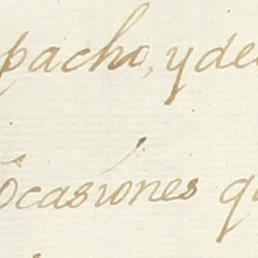 pacho, y de
Ocasiones q